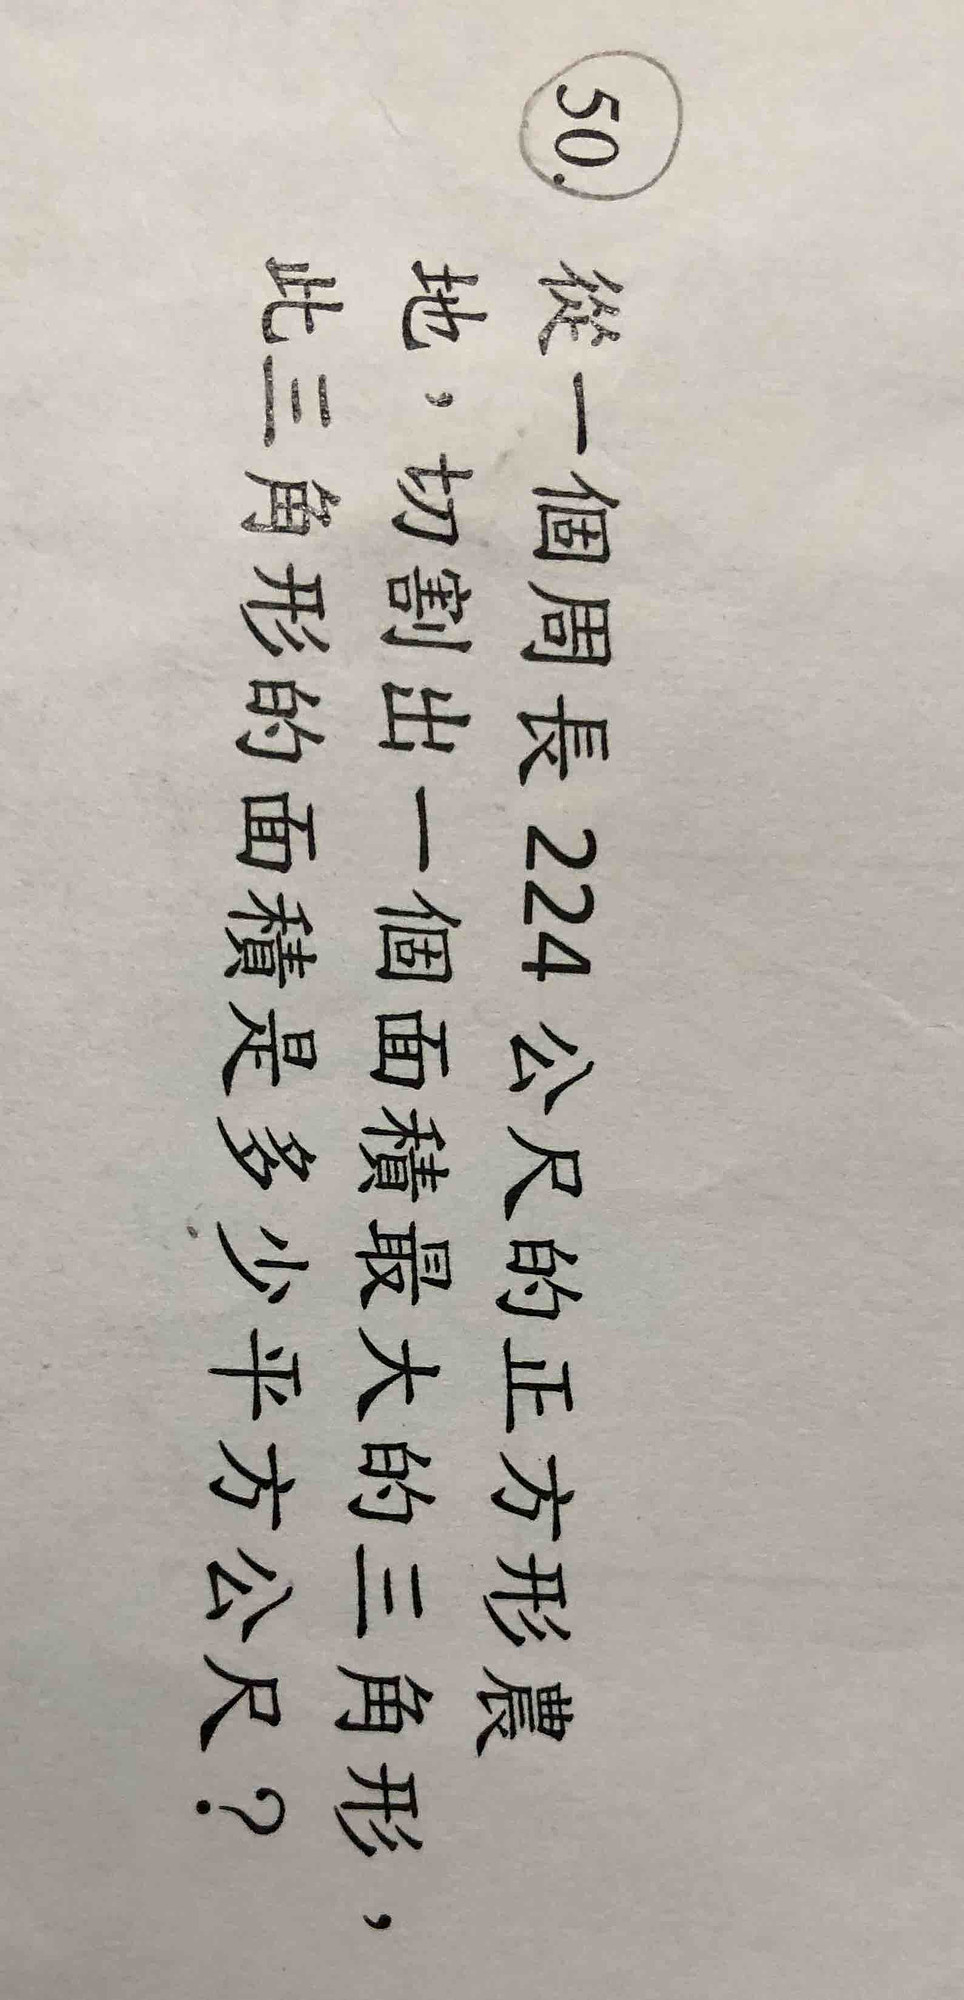 50. 從一個周長224公尺的正方形農
地，切割出一個面積最大的三角形，
此三角形的面積是多少平方公尺？